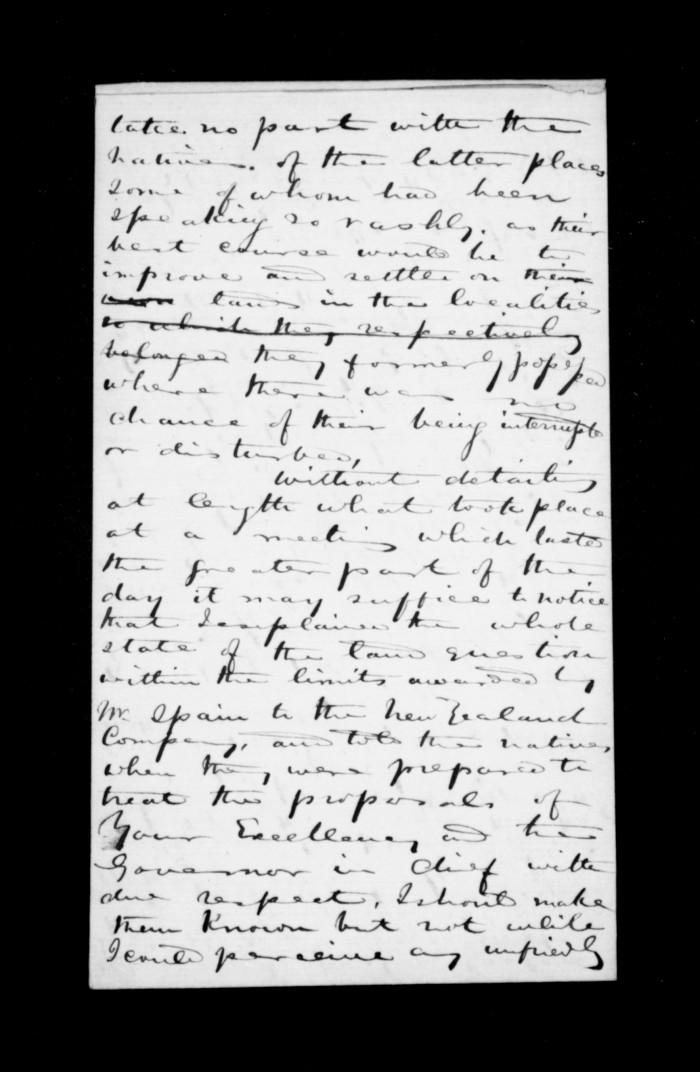 take no part with the
natives. of the latter places
some of whom had been
speaking so rashly. as their
best course would be to
improve and settle on their
own lands in the localities
to which they respectively
belonged they formerly possessed
where there was no
chance of their being interrupted
or disturbed,
without detailing
at length what took place
at a meeting which lasted
the greater part of the
day it may suffice to notice
that I explained the whole
state of the land question
within the limits awarded by
Mr Spain to the New Zealand
Company, and told the natives
when they were prepared to
treat the proposals of
Your Excellency and the
Governor in Chief with
due respect, I should make
them Known but not while
I could perceive any unfriendly